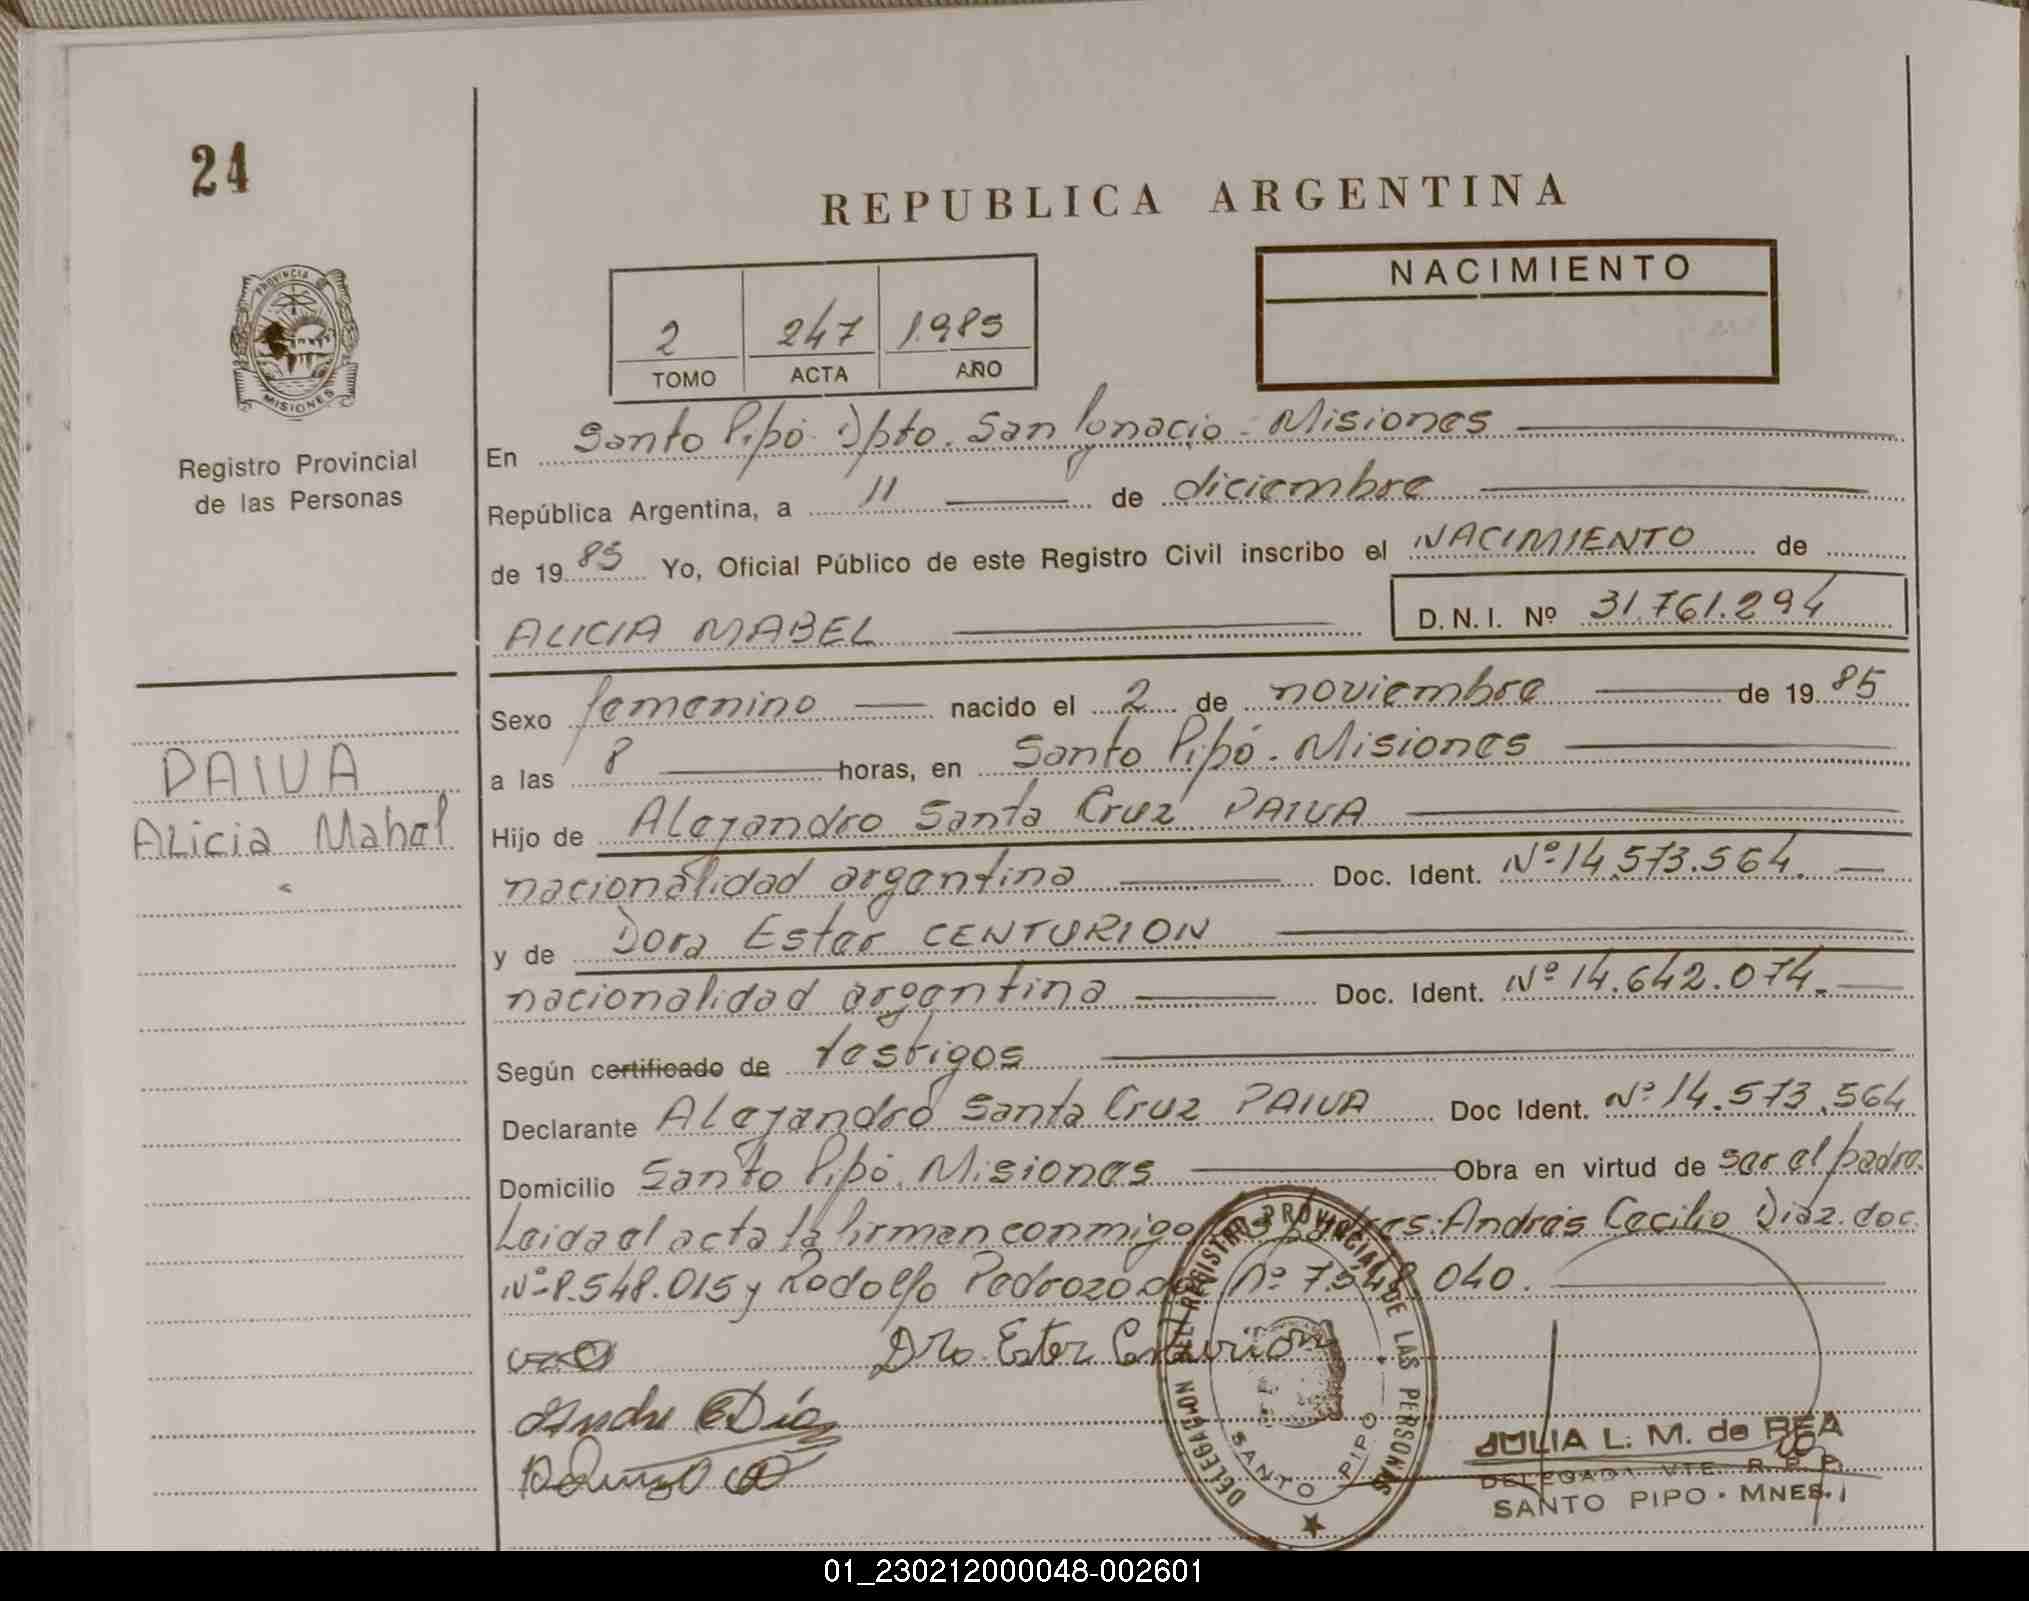 24
PROVINCIA
MISIONES
Registro Provincial
de las Personas
PAIVA
Alicia Mabel
REPUBLICA ARGENTINA
2 247 1.985
TOMO ACTA AÑO
NACIMIENTO
En Santo Pipó. Dpto. San Ignacio - Misiones
República Argentina, a 11 de diciembre
de 19 85 Yo, Oficial Público de este Registro Civil inscribo el NACIMIENTO de
ALICIA MABEL D.N.I. Nº 31.761.294
Sexo femenino nacido el 2 de noviembre de 19 85
a las 8 horas, en Santo Pipó. Misiones
Hijo de Alejandro Santa Cruz PAIVA
nacionalidad argentina Doc. Ident. Nº 14.573.564.
y de Dora Ester CENTURION
nacionalidad argentina Doc. Ident. Nº 14.642.074.
Según certificado de testigos
Declarante Alejandro Santa Cruz PAIVA Doc Ident. Nº 14.573.564
Domicilio Santo Pipó. Misiones Obra en virtud de ser el padre.
Leida el acta la firman conmigo Andrés Cecilio Diaz. doc.
Nº 8.548.015 y Rodolfo Pedrozo doc Nº 7.548.040.
Dra. Ester Centurion
Andre C Díaz
DELEGACION DEL REGISTRO PROVINCIAL DE LAS PERSONAS
SANTO PIPO
JULIA L. M. de REA
DELEGADA VTE. R. P. P.
SANTO PIPO - MNES.
01_230212000048-002601